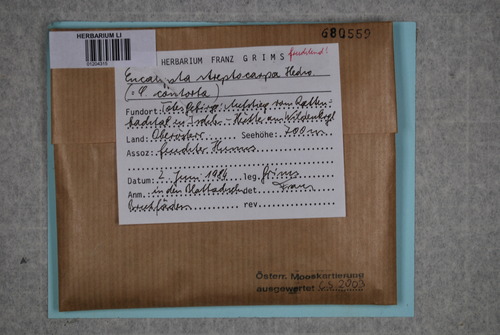 HERBARIUM LI
680559
HERBARIUM FRANZ GRIMS fruchtend!
Encalypta streptocarpa Hedw.
(= E. contorta)
Fundort: Totes Gebirge: Aufstieg vom
Hütte am Wildenkogl
Land: Oberösterr. Seehöhe: 700 m
Assoz: feuchter Humus
Datum: 2. Juni 1984 leg. Grims
Anm. in den Blattachseln det. Franz
Bruchfäden rev.
Österr. Mooskartierung
ausgewertet 6.5.2003